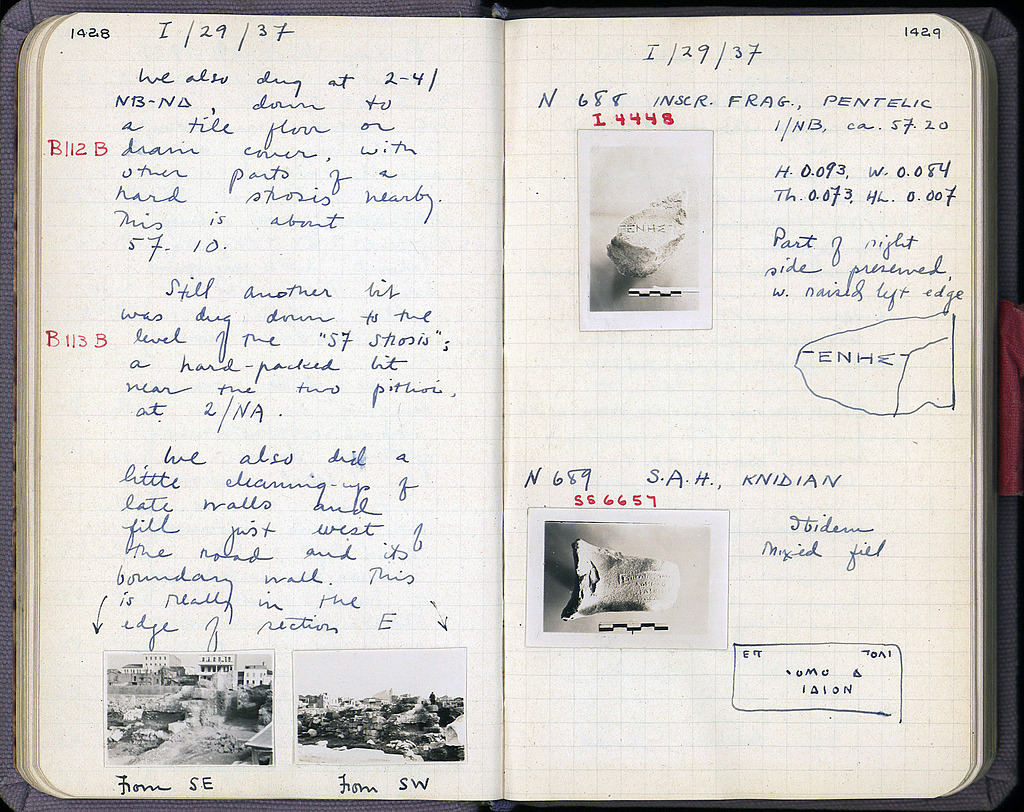 1428
I/29/37
We also dug at 2-4/
NB-NΔ, down to
a tile floor or
B112 B
drain cover, with
other parts of a
hard strosis nearby.
This is about
57.10.
Still another bit
was dug down to the
B113 B
level of the "57 strosis";
a hard-packed bit
near the two pithoi,
at 2/NA.
We also did a
little cleaning-up of
late walls and
fill just west of
the road and its
boundary wall. This
is really in the
edge of section E
From SE
From SW
1429
I/29/37
N 688 INSCR. FRAG., PENTELIC
I 4448
1/NB, ca. 57.20
H. 0.093, W. 0.084
Th. 0.073, HL. 0.007
Part of right
side preserved,
w. raised left edge
ΕΝΗΣ
ΓΕΝΗΣ
N 689 S.A.H., KNIDIAN
SS 6657
Ibidem
Mixed fill
ΕΠ
ΟΜΟ Δ
ΙΔΙΟΝ